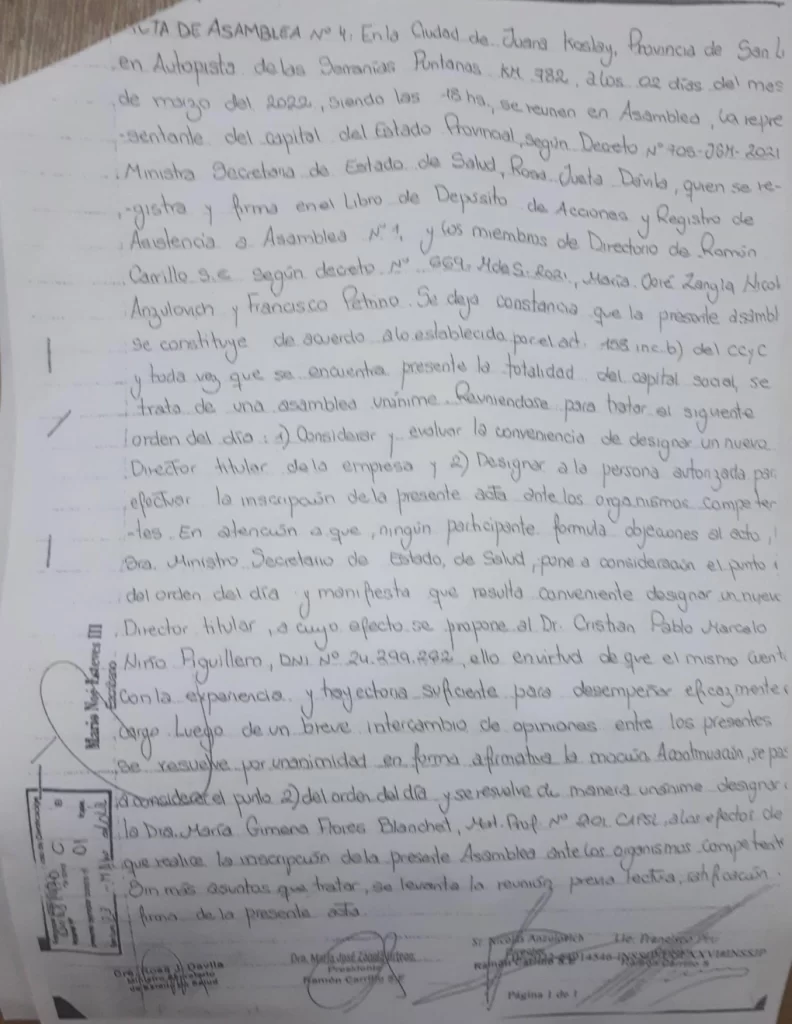 ACTA DE ASAMBLEA Nº 4. En la Ciudad de Juana Koslay, Provincia de San L
en Autopista de las Serranías Puntanas KM 782, a los 02 días del mes
de marzo del 2022, siendo las 18 hs, se reunen en Asamblea, la repre
-sentante del capital del Estado Provincial, según Decreto Nº 708-JGM-2021
Ministra Secretaria de Estado de Salud, Rosa Jueta Davila, quien se re-
-gistra y firma en el Libro de Deposito de Acciones y Registro de
Asistencia a Asamblea Nº 1, y los miembros de Directorio de Ramón
Carrillo S.E según decreto Nº 669-MdeS-2021, María José Zangla Nicol
Anzulovich y Francisco Petrino. Se deja constancia que la presente asambl
se constituye de acuerdo a lo establecido por el art. 158 inc. b) del CCyC
y toda vez que se encuentra presente la totalidad del capital social, se
trata de una asamblea unánime. Reuniendose para tratar el siguiente
orden del día: 1) Considerar y evaluar la conveniencia de designar un nuevo
Director titular de la empresa y 2) Designar a la persona autorizada para
efectuar la inscripción de la presente acta ante los organismos competen
-tes. En atención a que, ningún participante formula objeciones al acto,
Sra. Ministro Secretario de Estado, de Salud, pone a consideración el punto 1
del orden del día y manifiesta que resulta conveniente designar un nuevo
Director titular, a cuyo efecto se propone al Dr. Cristian Pablo Marcelo
Niño Piguillero, DNI Nº 24.399.292, ello en virtud de que el mismo cuent
con la experiencia y trayectoria suficiente para desempeñar eficazmente
cargo. Luego de un breve intercambio de opiniones entre los presentes
se resuelve por unanimidad en forma afirmativa la moción. A continuación, se pas
a considerar el punto 2) del orden del día y se resuelve de manera unánime designar
la Dra. María Gimena Flores Blanchet, Mat. Prof Nº CAPSL, a los efectos de
que realice la inscripción de la presente Asamblea ante los organismos competente
Sin más asuntos que tratar, se levanta la reunión previa lectura, ratificación
firma de la presente acta.
Mario Noé Esteves III
Escribano
Dra. Rosa J. Davila
Ministro Secretario
de Estado de Salud
Dra. María José Zangla
Presidente
Ramón Carrillo S.E
Sr. Nicolás Anzulovich
Ramón Carrillo S.E
Lic. Francisco
Página 1 de 1